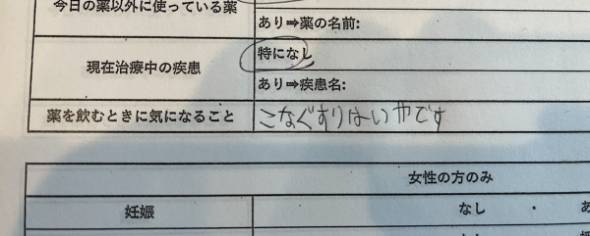 今日の薬以外に使っている薬
あり➡薬の名前:
現在治療中の疾患
特になし
あり➡疾患名:
薬を飲むときに気になること
こなぐすりはいやです
女性の方のみ
妊娠
なし ・ あ